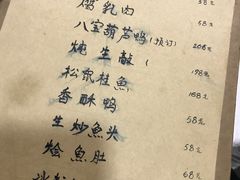 焖乳肉 58元
八宝葫芦鸭(预订) 208元
炖生敲(
松鼠桂魚 198元
香酥鸭 168元
生炒魚头 58元
烩魚肚 58元
68元